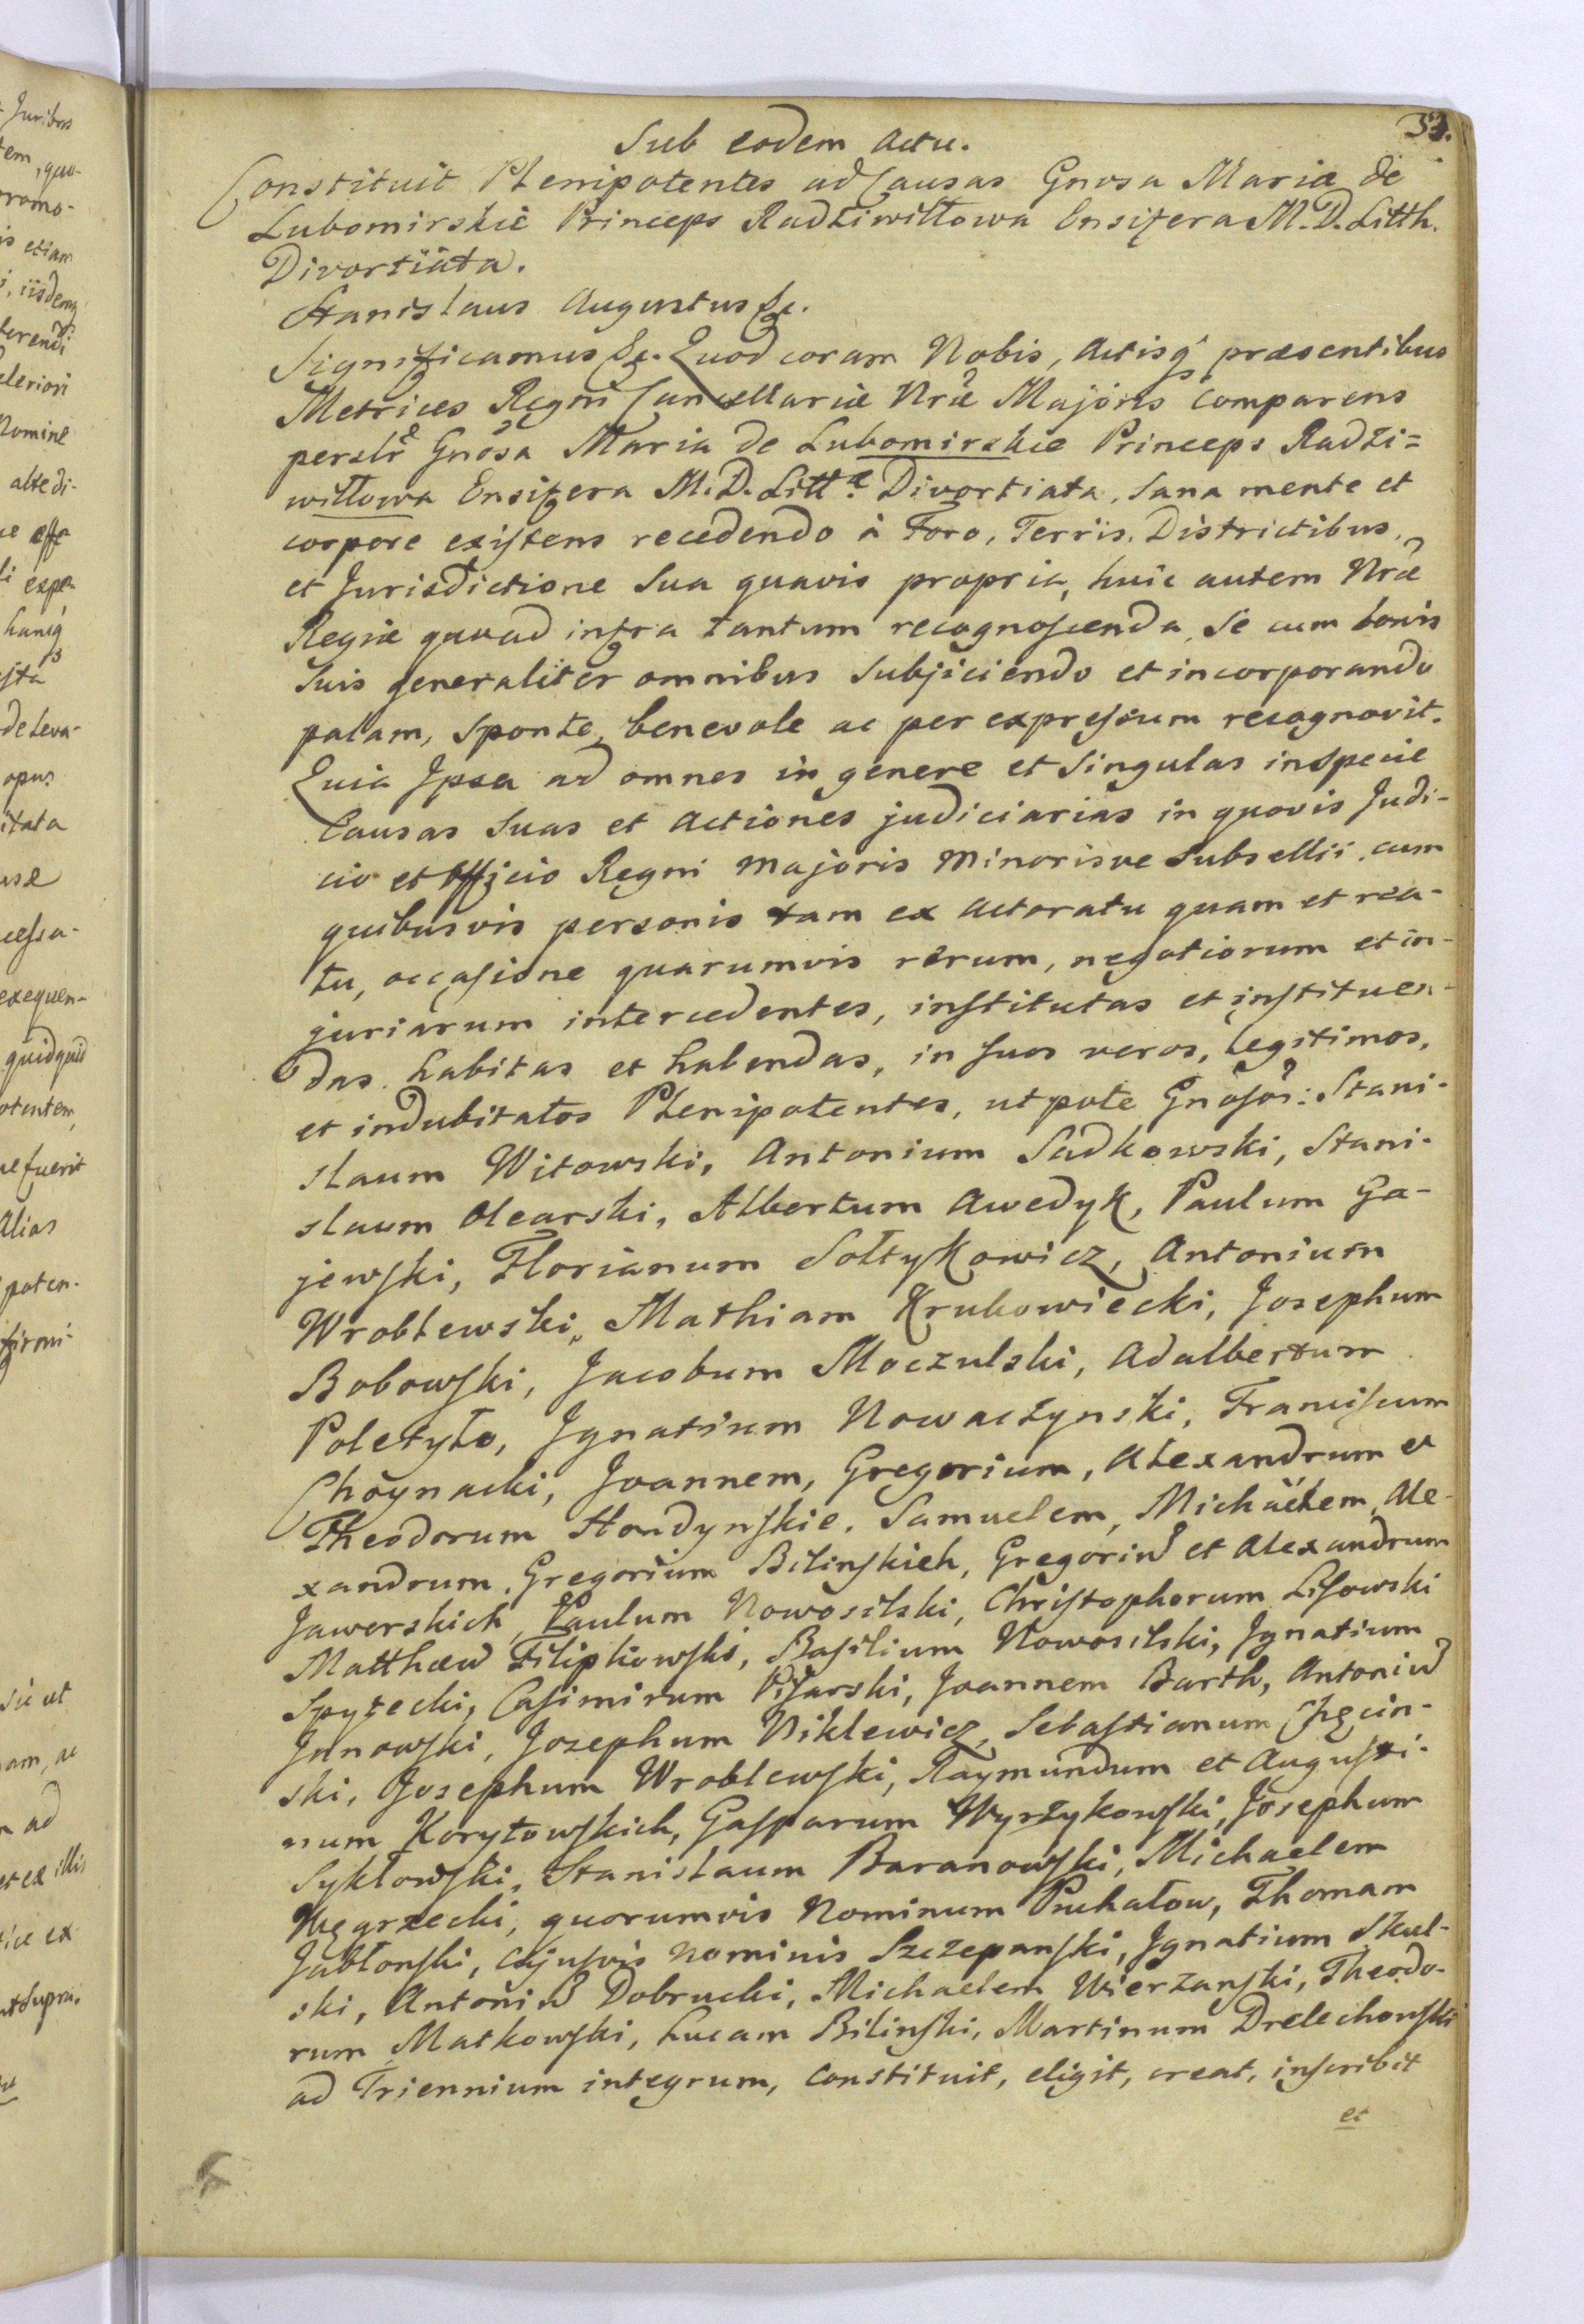 53.
Sub eodem Actu.
Constituit Plenipotentes ad Causas Gnosa Maria de
Lubomirskie Princeps Radziwiłłowa Ensifera M. D. Litth.
Divortiata.
Stanislaus Augustus &c.
Significamus &c. Quod coram Nobis, Actisq præsentibus
Metrices Regni Cancellariæ Nræ Majoris Comparens
perslr Gnosa Maria de Lubomirskie Princeps Radzi=
wiłłowa Ensifera M. D. Littæ Divortiata, Sana mente et
corpore existens recedendo à Foro, Terris, Districtibus,
et Jurisdictione Sua quavis propria, huic autem Nræ
Regiæ quoad infra tantum recognoscenda, Se cum bonis
Suis generaliter omnibus Subjiciendo et incorporando
palam, Sponte, benevole ac per expressum recognovit.
Quia Ipsa ad omnes in genere et Singulas in Specie
Causas Suas et Actiones judiciarias in quovis Judi-
cio et Officio Regni Majoris Minorisve Subsellii, cum
quibusvis personis tam ex Actoratu quam et rea-
tu, occasione quarumvis rerum, negotiorum et in-
juriarum intercedentes, institutas et instituen-
das. habitas et habendas, in suos veros, legitimos,
et indubitatos Plenipotentes, utpote Gnosos: Stani-
slaum Witowski, Antonium Sadkowski, Stani-
slaum Olearski, Albertum Awedyk, Paulum Ga-
jewski, Florianum Sołtykowicz, Antonium
Wroblewski, Mathiam Krukowiecki, Josephum
Bobowski, Jacobum Moczulski, Adalbertum
Poletyło, Ignatium Nowaczynski, Franciscum
Choynacki, Joannem, Gregorium, Alexandrum et
Theodorum Hordynskie. Samuelem, Michaëlem, Ale-
xandrum, Gregorium Bilinskich, Gregoriu et Alexandrum
Jaworskich, Paulum Nowosilski, Christophorum Lisowski
Matthæu Filipkowski, Basilium Nowosilski, Ignatium
Spytecki, Casimirum Pisarski, Joannem Barth, Antoniu
Janowski, Josephum Niklewicz, Sebastianum Chęcin-
ski, Josephum Wroblewski, Raymundum et Augusti-
num Korytowskich, Gasparum Wyrzykowski, Josephum
Sykłowski, Stanislaum Baranowski, Michaelem
Węgrzecki, quorumvis Nominum Puchałow, Thomam
Jabłonski, cujusvis nominis Szczepanski, Ignatium Skul-
ski, Antoniu Dobrucki, Michaelem Wierzanski, Theodo-
rum Matkowski, Lucam Bilinski, Martinum Drelechowski
ad Triennium integrum, Constituit, eligit, creat, inscribit
et